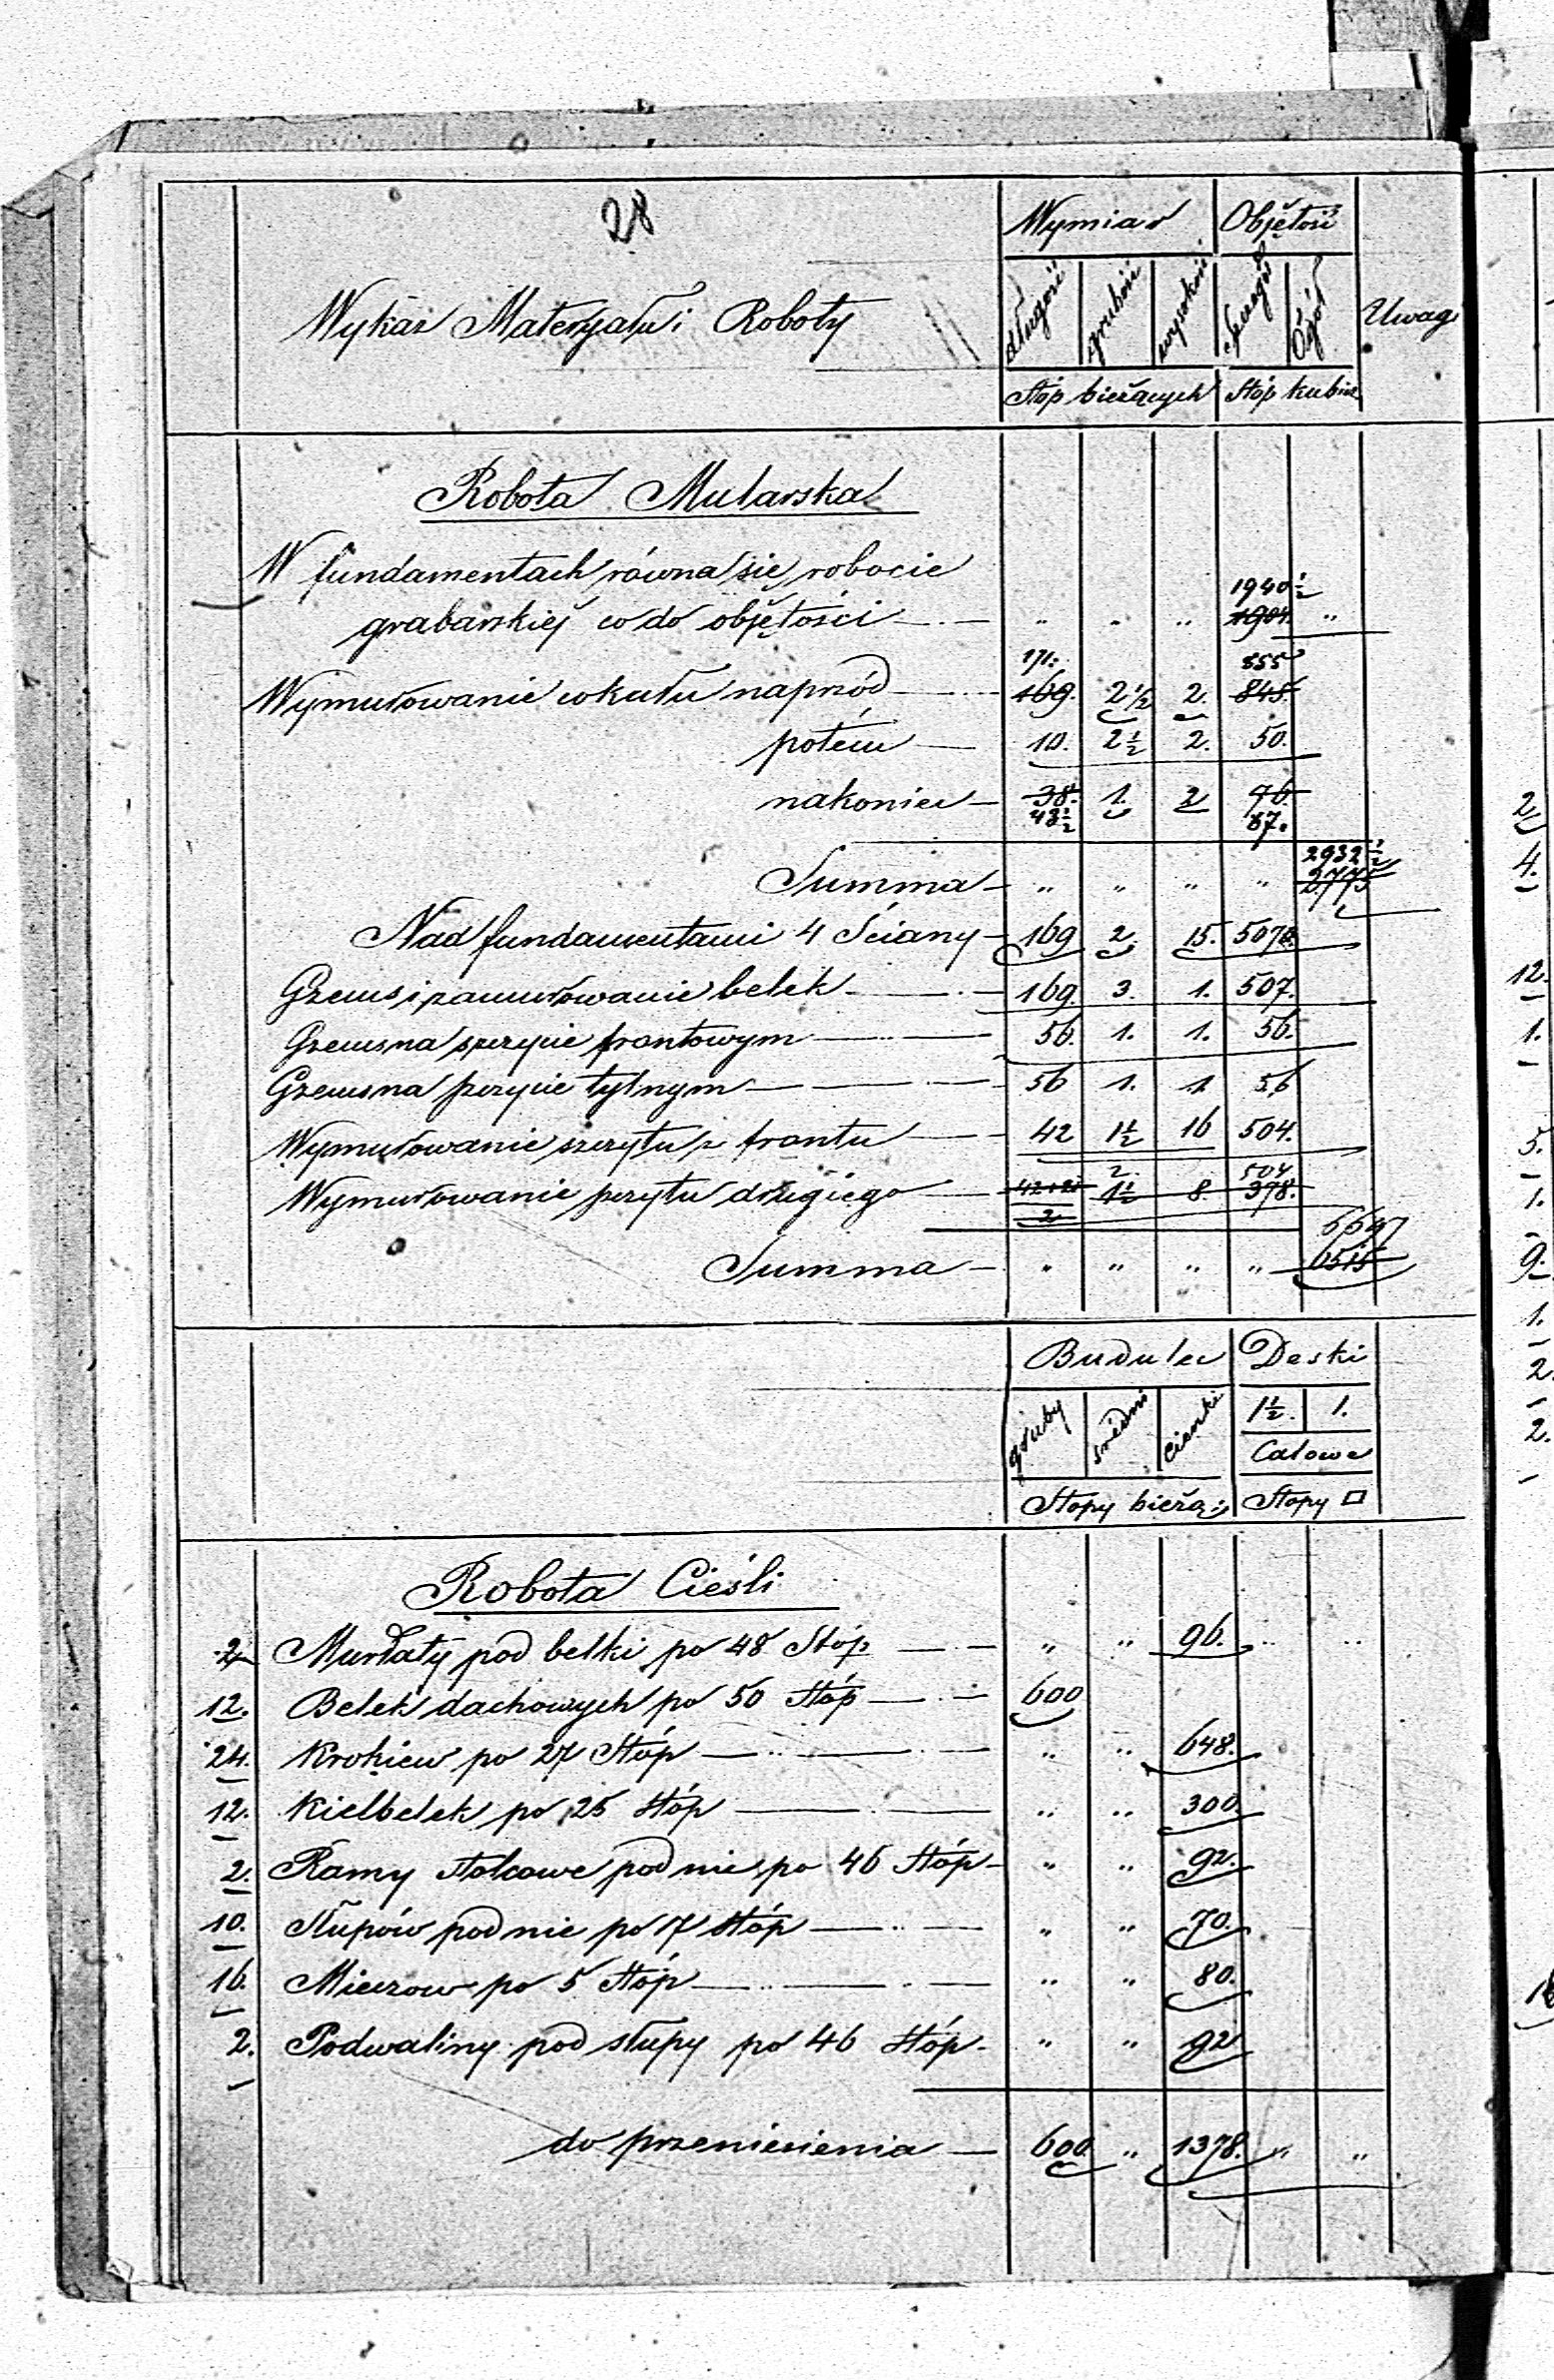 28
Wymiar Objętość
Wykaz Materyału i Roboty
długość grubość wysokość Ogół Uwagi
Stóp bieżących Stóp kubicz
Robota Mularska
W fundamentach równa się robocie
1940 1/2
grabarskiéj co do objętości — " " " 1904. "
171. 855
Wymurowanie cokułu naprzód — 169. 2 1/2 2. 845.
potém — 10. 2 1/2 2. 50.
nakoniec — 38. 1. 2 76.
43 1/2 87.
2932 1/2
Summa — " " " " 2775
Nad fundamentami 4 Ściany — 169 2. 15. 5070.
Gzems i zamurowanie belek — 169. 3. 1. 507.
Gzems na szczycie frontowym — 56. 1. 1. 56.
Gzems na szczycie tylnym — 56 1. 1. 56
Wymurowanie szczytu z frontu — 42 1 1/2 16 504.
2. 504.
Wymurowanie szczytu drugiego — 42+21 1 1/2 8. 378.
2
6697
Summa — " " " " 6515
Budulec Deski
gruby średni cienki 1 1/2. 1.
Calowe
Stopy bieżą: Stopy □
Robota Cieśli
2 Murłaty pod belki po 48 Stóp — " " 96. " "
12. Belek dachowych po 50 Stóp — 600
24. Krokiew po 27 Stóp — " " 648.
12. Kielbelek po 25 stóp — " " 300.
2. Ramy stolcowe pod nie po 46 Stóp — " " 92.
10. Słupów pod nie po 7 stóp — " " 70.
16. Mieczow po 5 Stóp — " " 80.
2. Podwaliny pod słupy po 46 stóp — " " 92
do przeniesienia — 600. " 1378. " "
2.
4.
12.
1.
5.
1.
9.
1.
2.
2.